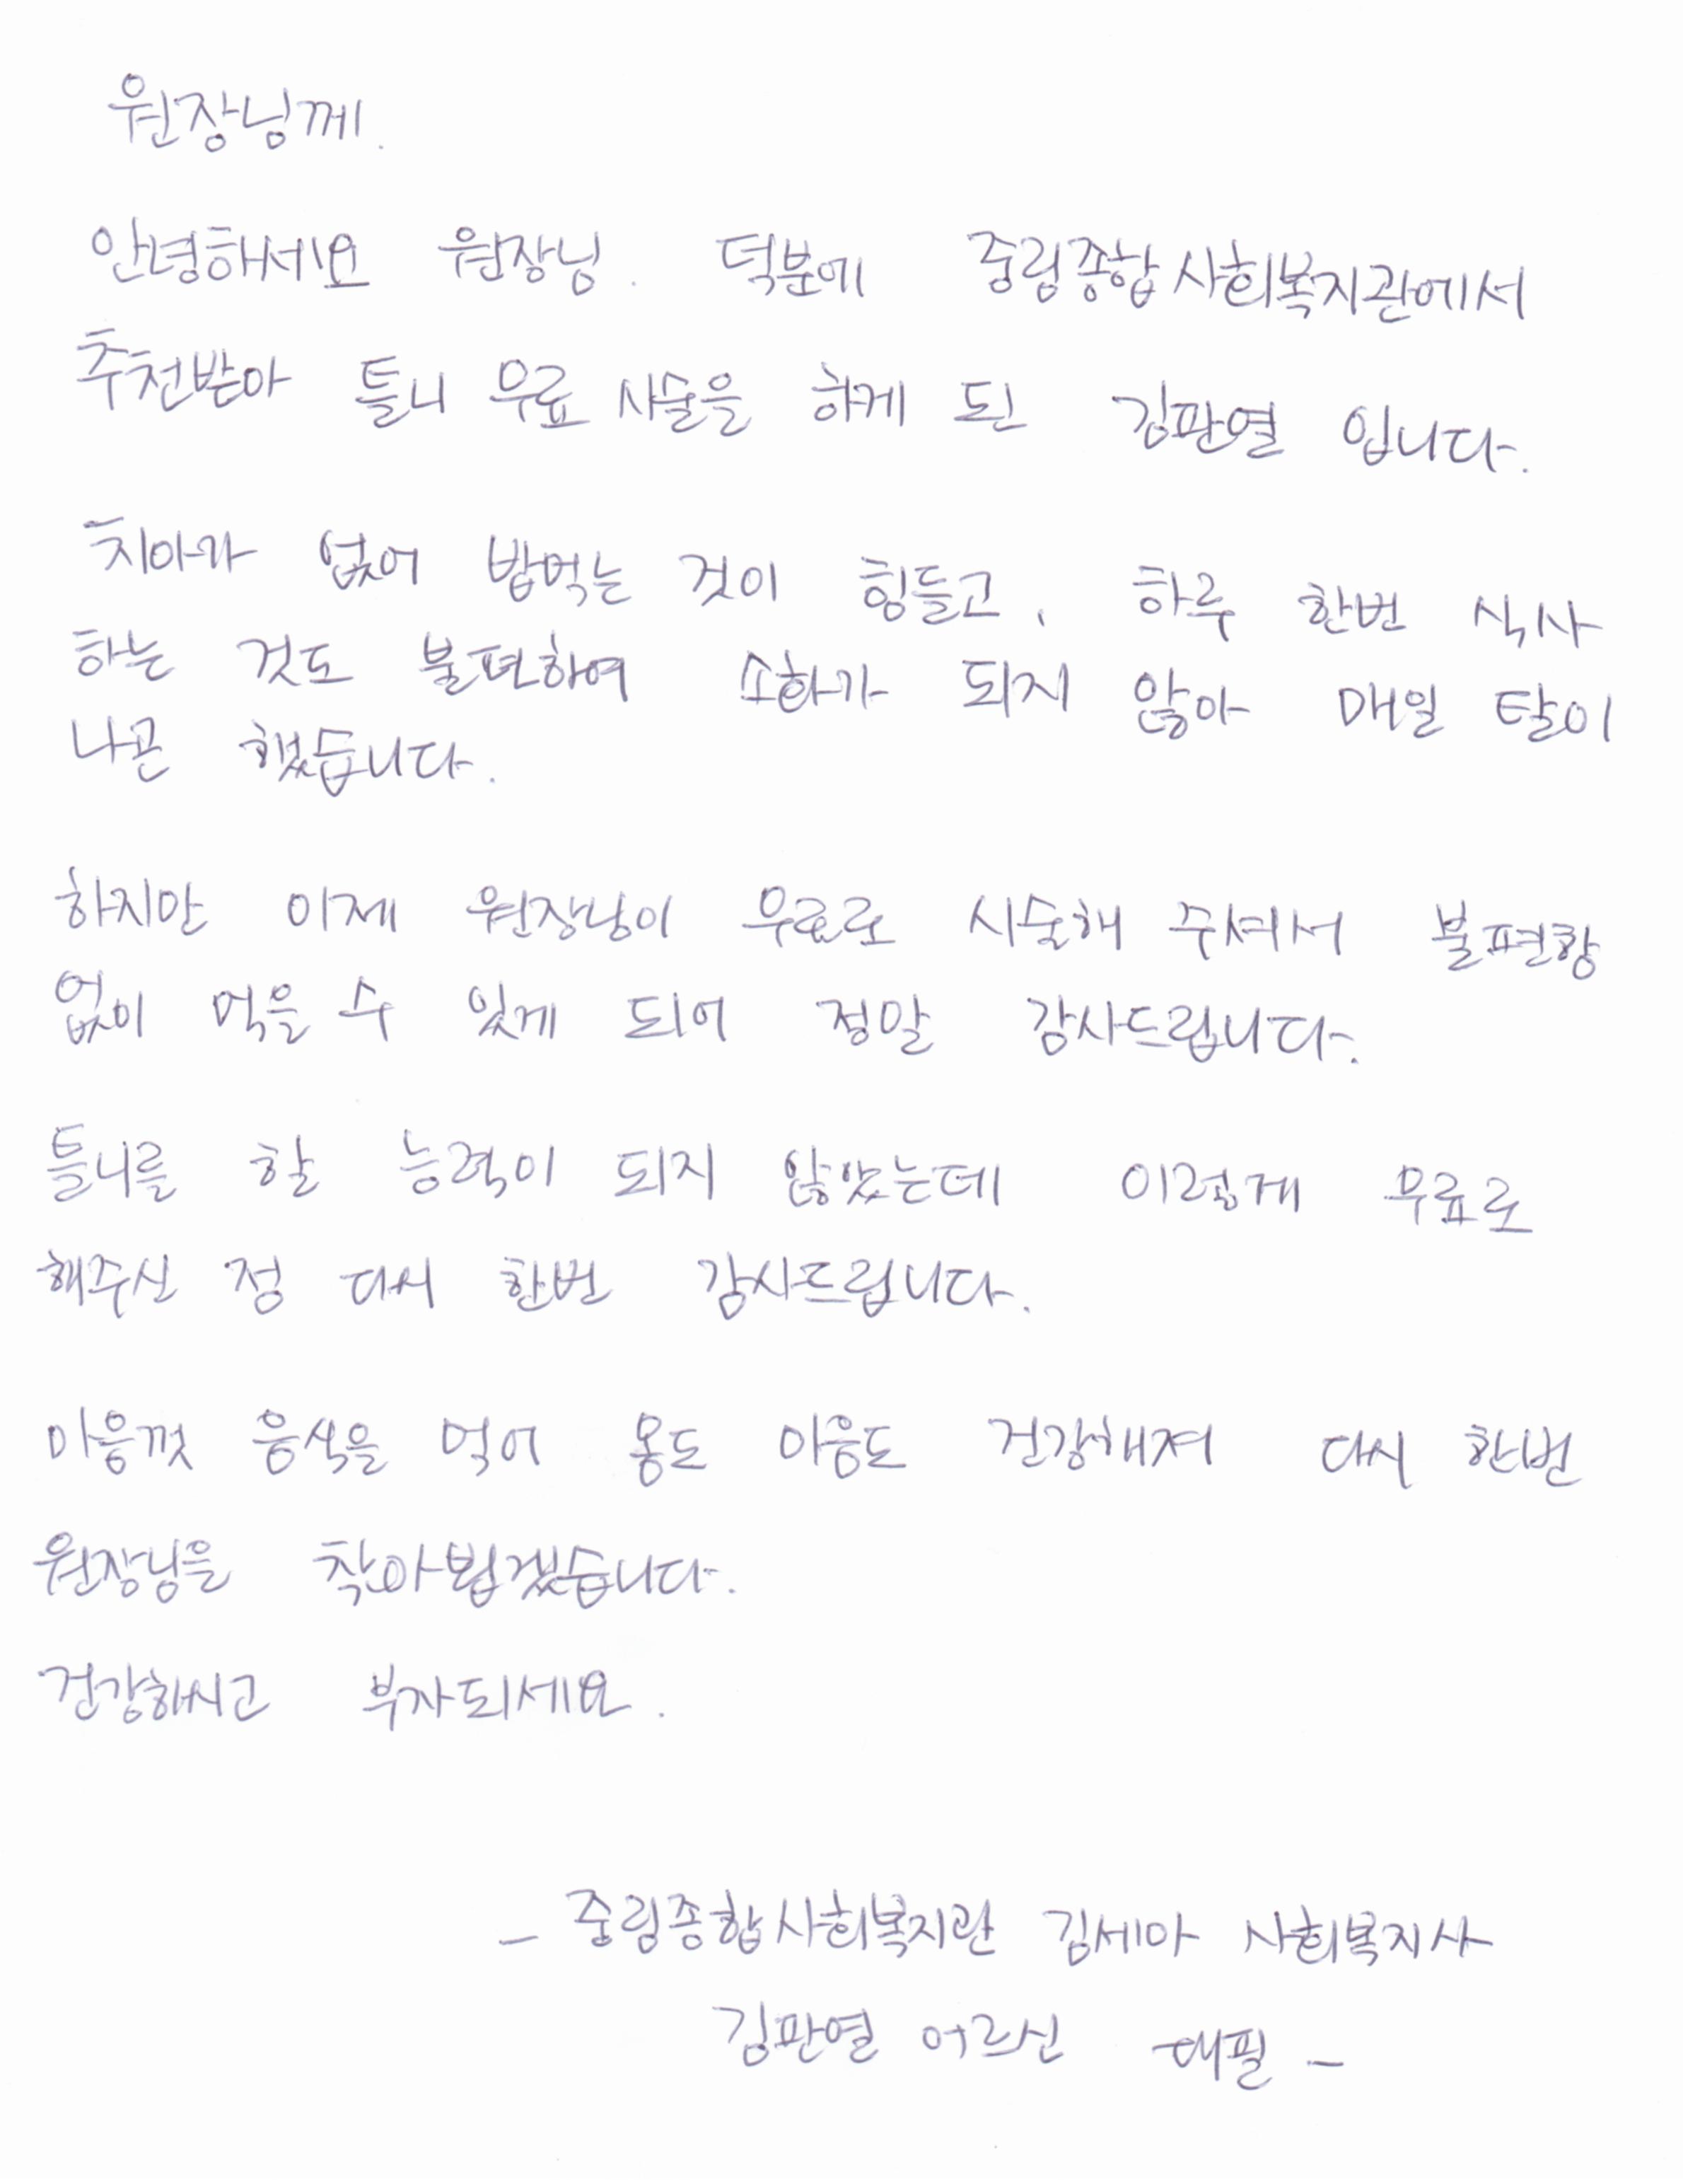 원장님께.
안녕하세요 원장님. 덕분에 중림종합사회복지관에서
추천받아 틀니 무료 시술을 하게 된 김판열 입니다.
치아가 없어 밥먹는 것이 힘들고, 하루 한번 식사
하는 것도 불편하여 소화가 되지 않아 매일 탈이
나곤 했습니다.
하지만 이제 원장님이 무료로 시술해 주셔서 불편함
없이 먹을 수 있게 되어 정말 감사드립니다.
틀니를 할 능력이 되지 않았는데 이렇게 무료로
해주신 점 다시 한번 감사드립니다.
마음껏 음식을 먹어 몸도 마음도 건강해져 다시 한번
원장님을 찾아뵙겠습니다.
건강하시고 부자되세요.
- 중림종합사회복지관 김세아 사회복지사
김판열 어르신 대필 -